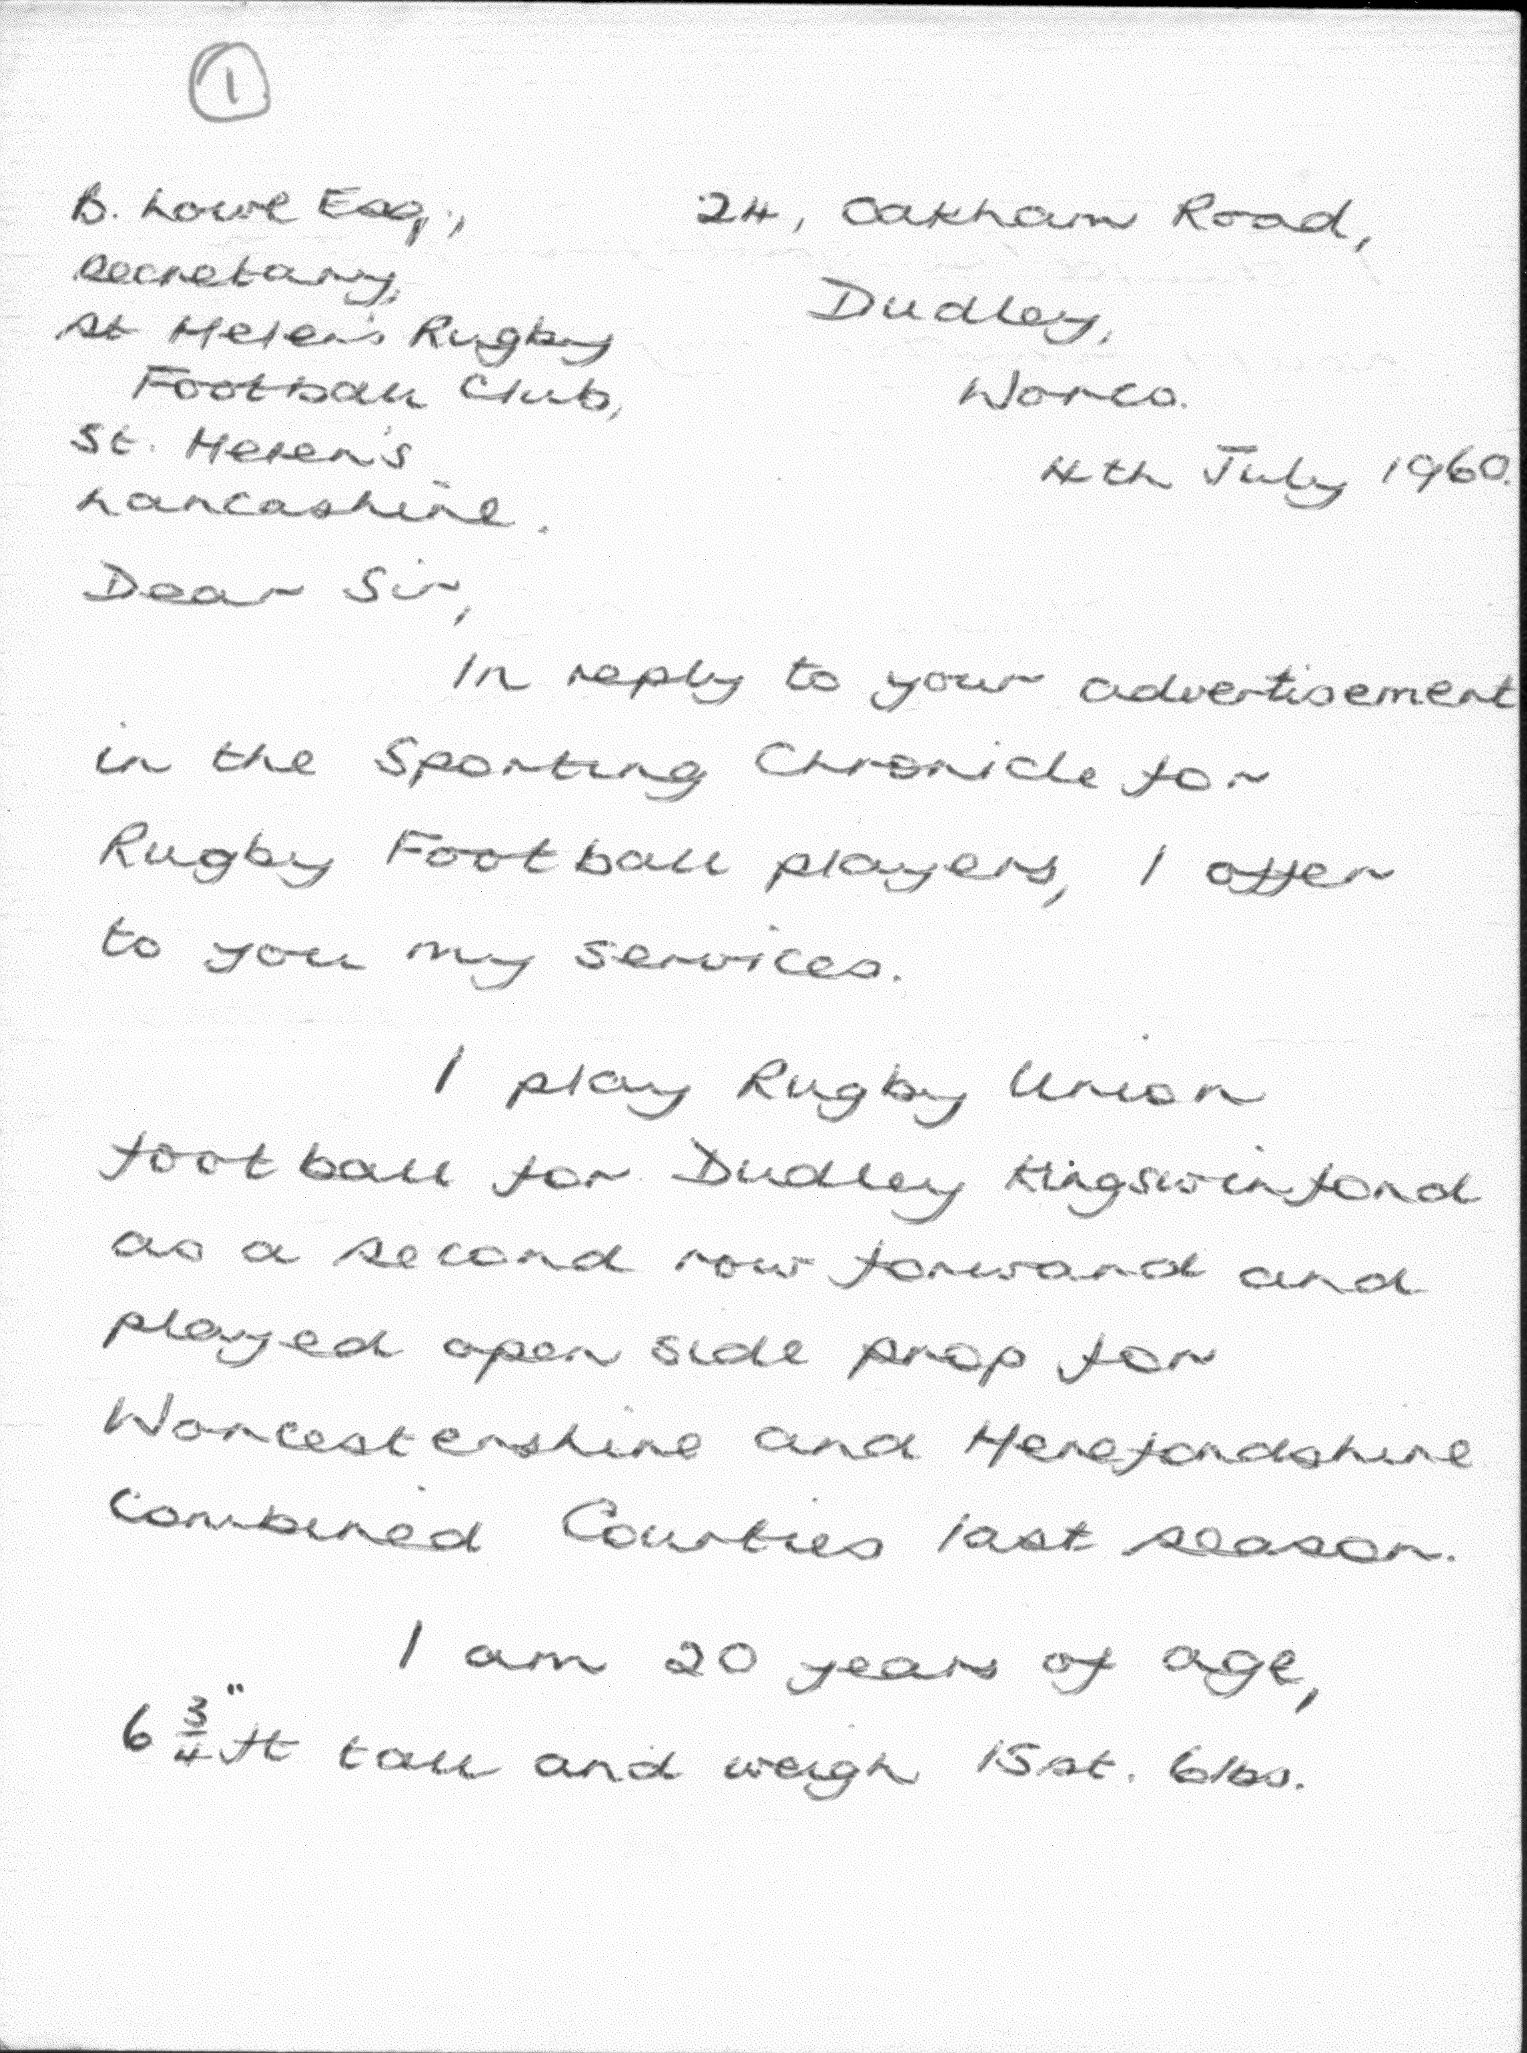 1
B. Lowe Esq.,
Secretary,
St Helen's Rugby
Football Club,
St. Helen's
Lancashire.
24, Oakham Road,
Dudley,
Worcs.
4th July 1960.
Dear Sir,
In reply to your advertisement
in the Sporting Chronicle for
Rugby Football players, I offer
to you my services.
I play Rugby Union
football for Dudley Kingswinford
as a second row forward and
played open side prop for
Worcestershire and Herefordshire
Combined Counties last season.
I am 20 years of age,
6 3/4" ft tall and weigh 15st. 6lbs.